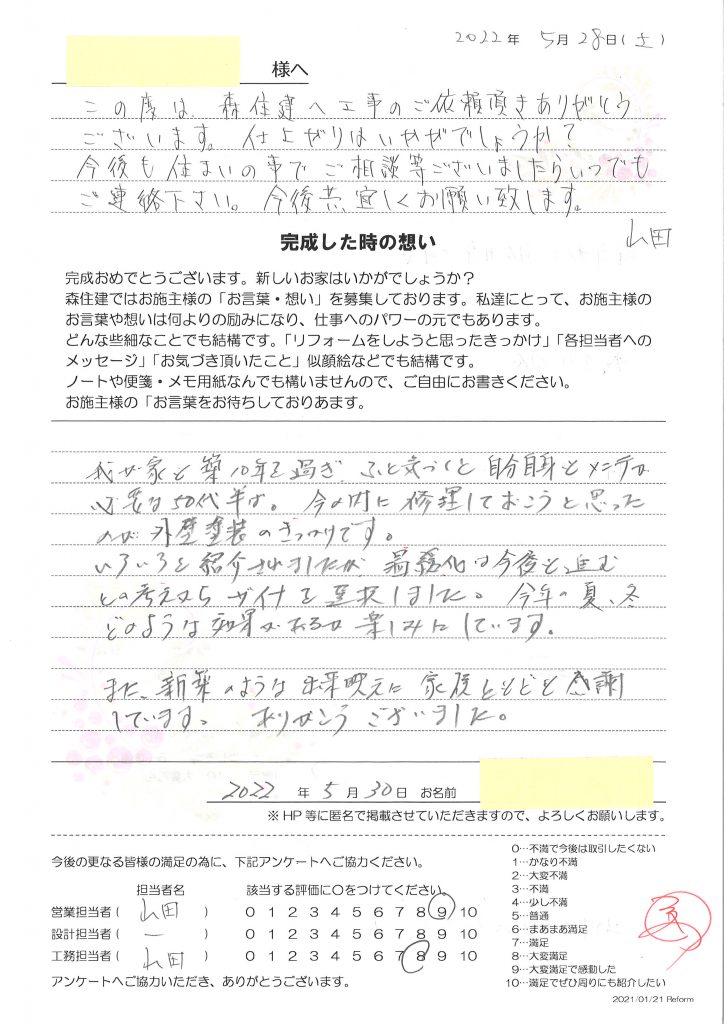 2022年 5月 28日(土)
様へ
この度は、森住建へ工事のご依頼頂きありがとう
ございます。仕上がりはいかがでしょうか?
今後も住まいの事でご相談等ございましたらいつでも
ご連絡下さい。今後共、宜しくお願い致します。
山田
完成した時の想い
完成おめでとうございます。新しいお家はいかがでしょうか?
森住建ではお施主様の「お言葉・想い」を募集しております。私達にとって、お施主様の
お言葉や想いは何よりの励みになり、仕事へのパワーの元でもあります。
どんな些細なことでも結構です。「リフォームをしようと思ったきっかけ」「各担当者への
メッセージ」「お気づき頂いたこと」似顔絵などでも結構です。
ノートや便箋・メモ用紙なんでも構いませんので、ご自由にお書きください。
お施主様の「お言葉をお待ちしておりあます。
我が家も築10年を過ぎ、ふと気づくと自分自身もメンテが
必要な50代半ば。今の内に修理しておこうと思った
のが外壁塗装のきっかけです。
いろいろと紹介されましたが、温暖化は今後も進む
との考えから ガイナを選択しました。今年の夏、冬
どのような効果があるか楽しみにしています。
また、新築のような出来映えに家族ともども感謝
しています。ありがとうございました。
2022 年 5 月 30 日 お名前
※HP等に匿名で掲載させていただきますので、よろしくお願いします。
今後の更なる皆様の満足の為に、下記アンケートへご協力ください。
担当者名 該当する評価に○をつけてください。
営業担当者( 山田 ) 0 1 2 3 4 5 6 7 8 9 10
設計担当者( ー ) 0 1 2 3 4 5 6 7 8 9 10
工務担当者( 山田 ) 0 1 2 3 4 5 6 7 8 9 10
アンケートへご協力いただき、ありがとうございます。
0…不満で今後は取引したくない
1…かなり不満
2…大変不満
3…不満
4…少し不満
5…普通
6…まあまあ満足
7…満足
8…大変満足
9…大変満足で感動した
10…満足でぜひ周りにも紹介したい
2021/01/21 Reform